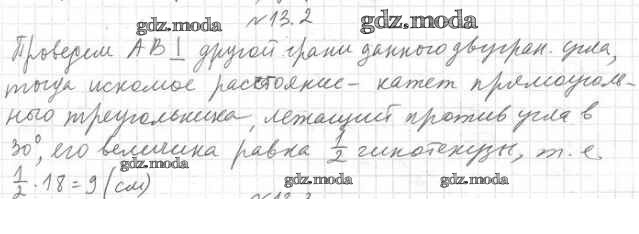 №13.2
gdz.moda gdz.moda
Проведем AB ⊥ другой грани данного двугран. угла,
тогда искомое расстояние – катет прямоуголь-
ного треугольника, лежащий против угла в
30°, его величина равна 1/2 гипотенузы, т.е.
gdz.moda
1/2 · 18 = 9 (см)
gdz.moda gdz.moda